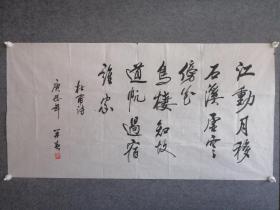 江動月移
石溪虛雲
傍花
鳥棲知故
道帆過宿
誰家
杜甫詩
庚辰年